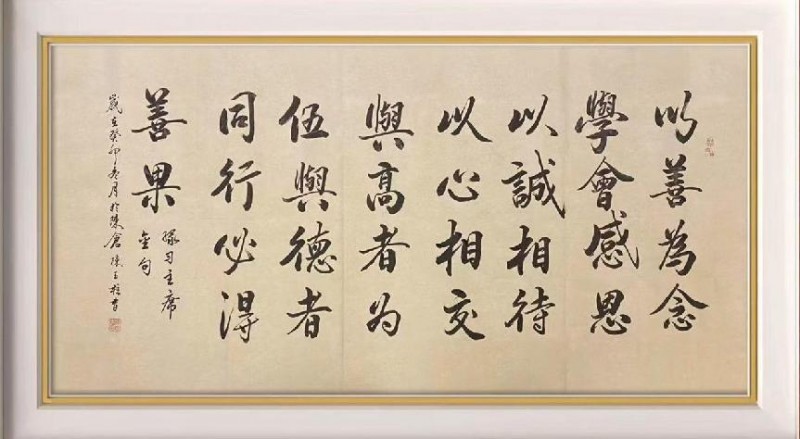 以善為念
學會感恩
以誠相待
以心相交
與高者為
伍與德者
同行必得
善果
録习主席
金句
歲在癸卯冬月於陳倉